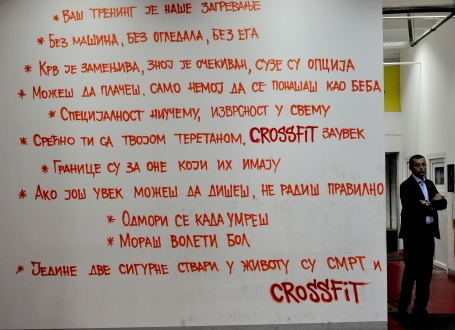 * Ваш тренинг је наше загревање
* Без машина, без огледала, без ега
* Крв је замењива, зној је очекиван, сузе су опција
* Можеш да плачеш, само немој да се понашаш као беба
* Специјалност ничему, изврсност у свему
* Срећно ти са твојом теретаном, CROSSFIT заувек
* Границе су за оне који их имају
* Ако још увек можеш да дишеш, не радиш правилно
* Одмори се када умреш
* Мораш волети бол
* Једине две сигурне ствари у животу су смрт и
CROSSFIT